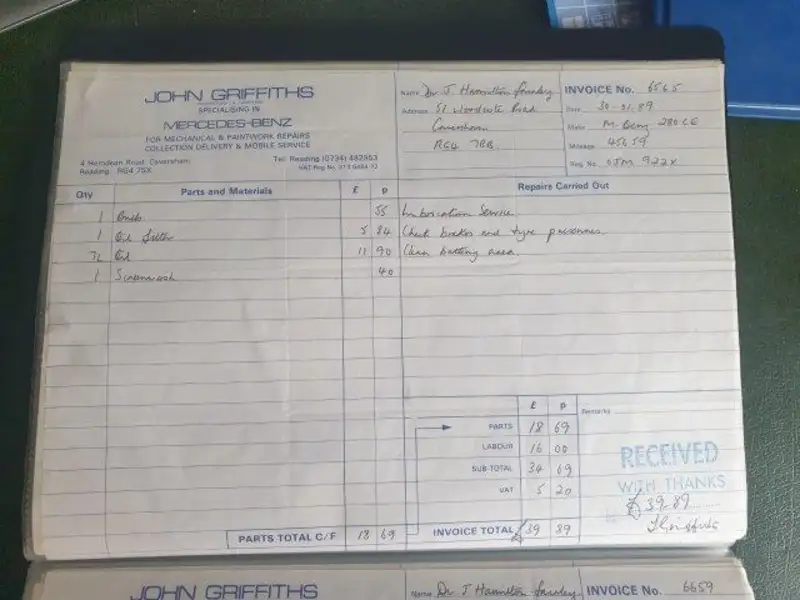 JOHN GRIFFITHS
SPECIALISING IN
MERCEDES-BENZ
FOR MECHANICAL & PAINTWORK REPAIRS
COLLECTION DELIVERY & MOBILE SERVICE
4 Hemdean Road, Caversham,
Reading RG4 7SX
Tel: Reading (0734) 482953
VAT Reg No.
Name Dr. J Hamilton
Address 51 Woodcote Road
Caversham
RG4 7BB
INVOICE No. 6565
Date 30-01.89
Make M. Benz 280 CE
Mileage 45659
Reg. No. 922X
Qty Parts and Materials £ p Repairs Carried Out
1 Bulb 55 Lubrication Service
1 Oil Filter 5 84 Check brakes and tyre pressures.
7L Oil 11 90 Clean battery area.
1 Screenwash 40
£ p Remarks
PARTS 18 69
LABOUR 16 00
SUB-TOTAL 34 69
VAT 5 20
PARTS TOTAL C/F 18 69 INVOICE TOTAL £39 89
RECEIVED
WITH THANKS
£39.89
JOHN GRIFFITHS
Name Dr J Hamilton
INVOICE No. 6659